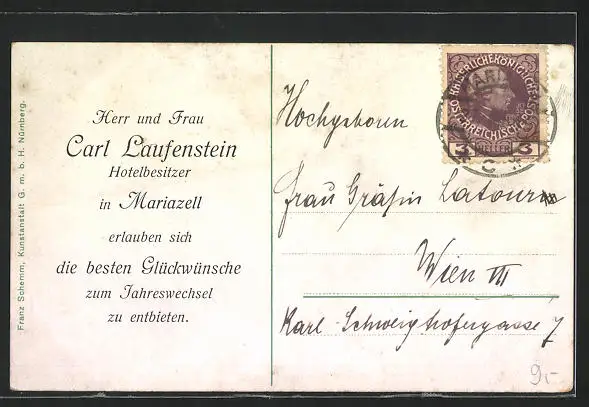 Franz Schemm, Kunstanstalt G. m. b. H. Nürnberg.
Herr und Frau
Carl Laufenstein
Hotelbesitzer
in Mariazell
erlauben sich
die besten Glückwünsche
zum Jahreswechsel
zu entbieten.
KAISERLICHEKÖNIGLICHE
ÖSTERREICHISCHE POST
3 HELLER 3
Hochgeboren
Frau Gräfin Latour
Wien III
Karl-Schweighofergasse 7
9,-